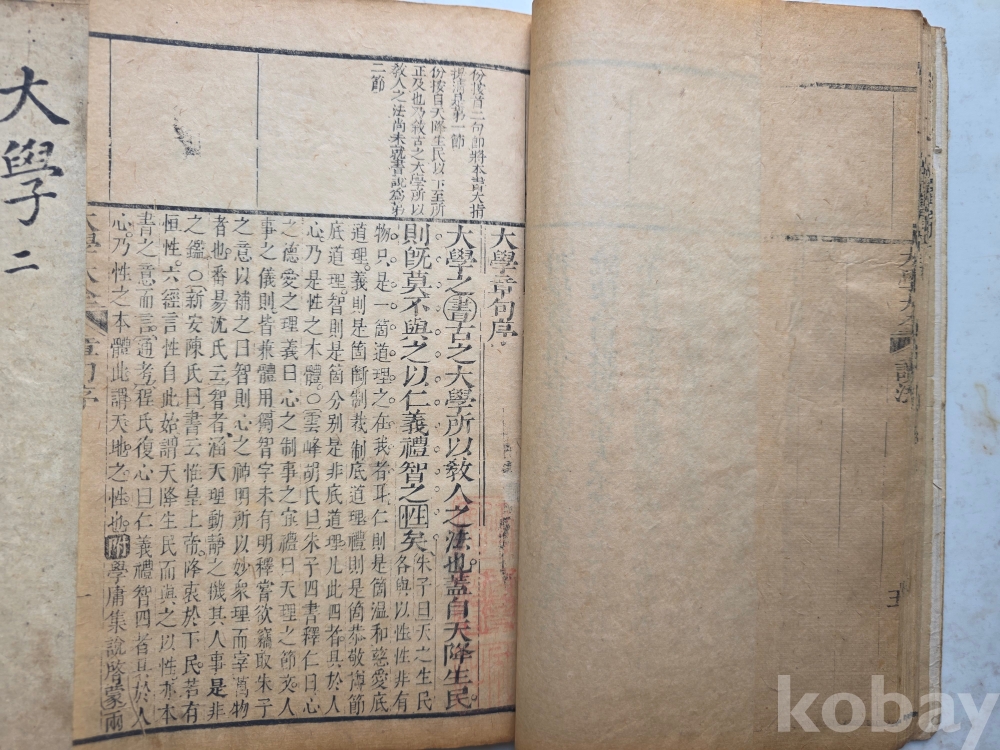 大學二
份按首二句卽將本書大指
份按自天降生民以下至所
正及也乃敘古之大學所以
敎人之法尚未就書說爲第
二節
大學章句序
大學之書古之大學所以敎人之法也蓋自天降生民
則旣莫不與之以仁義禮智之性矣
朱子曰天之生民
各與以性性非有
物只是一箇道理之在我者耳仁則是箇溫和慈愛底
道理義則是箇斷制裁制底道理禮則是箇恭敬撙節
底道理智則是箇分別是非底道理凡此四者具於人
心乃是性之本體○雲峰胡氏曰朱子四書釋仁曰心
之德愛之理義曰心之制事之宜禮曰天理之節文人
事之儀則皆兼體用獨智字未有明釋嘗欲竊取朱子
之意以補之曰智則心之神明所以妙衆理而宰萬物
者也番昜沈氏云智者涵天理動靜之機具人事是非
之鑑○新安陳氏曰書云惟皇上帝降衷於下民若有
恒性六經言性自此始謂天降生民而與之以性亦本
書之意而言通考程氏復心曰仁義禮智四者具於人
心乃性之本體此謂天地之性也附學庸集說啓蒙兩
大學大全 章句序 一
kobay